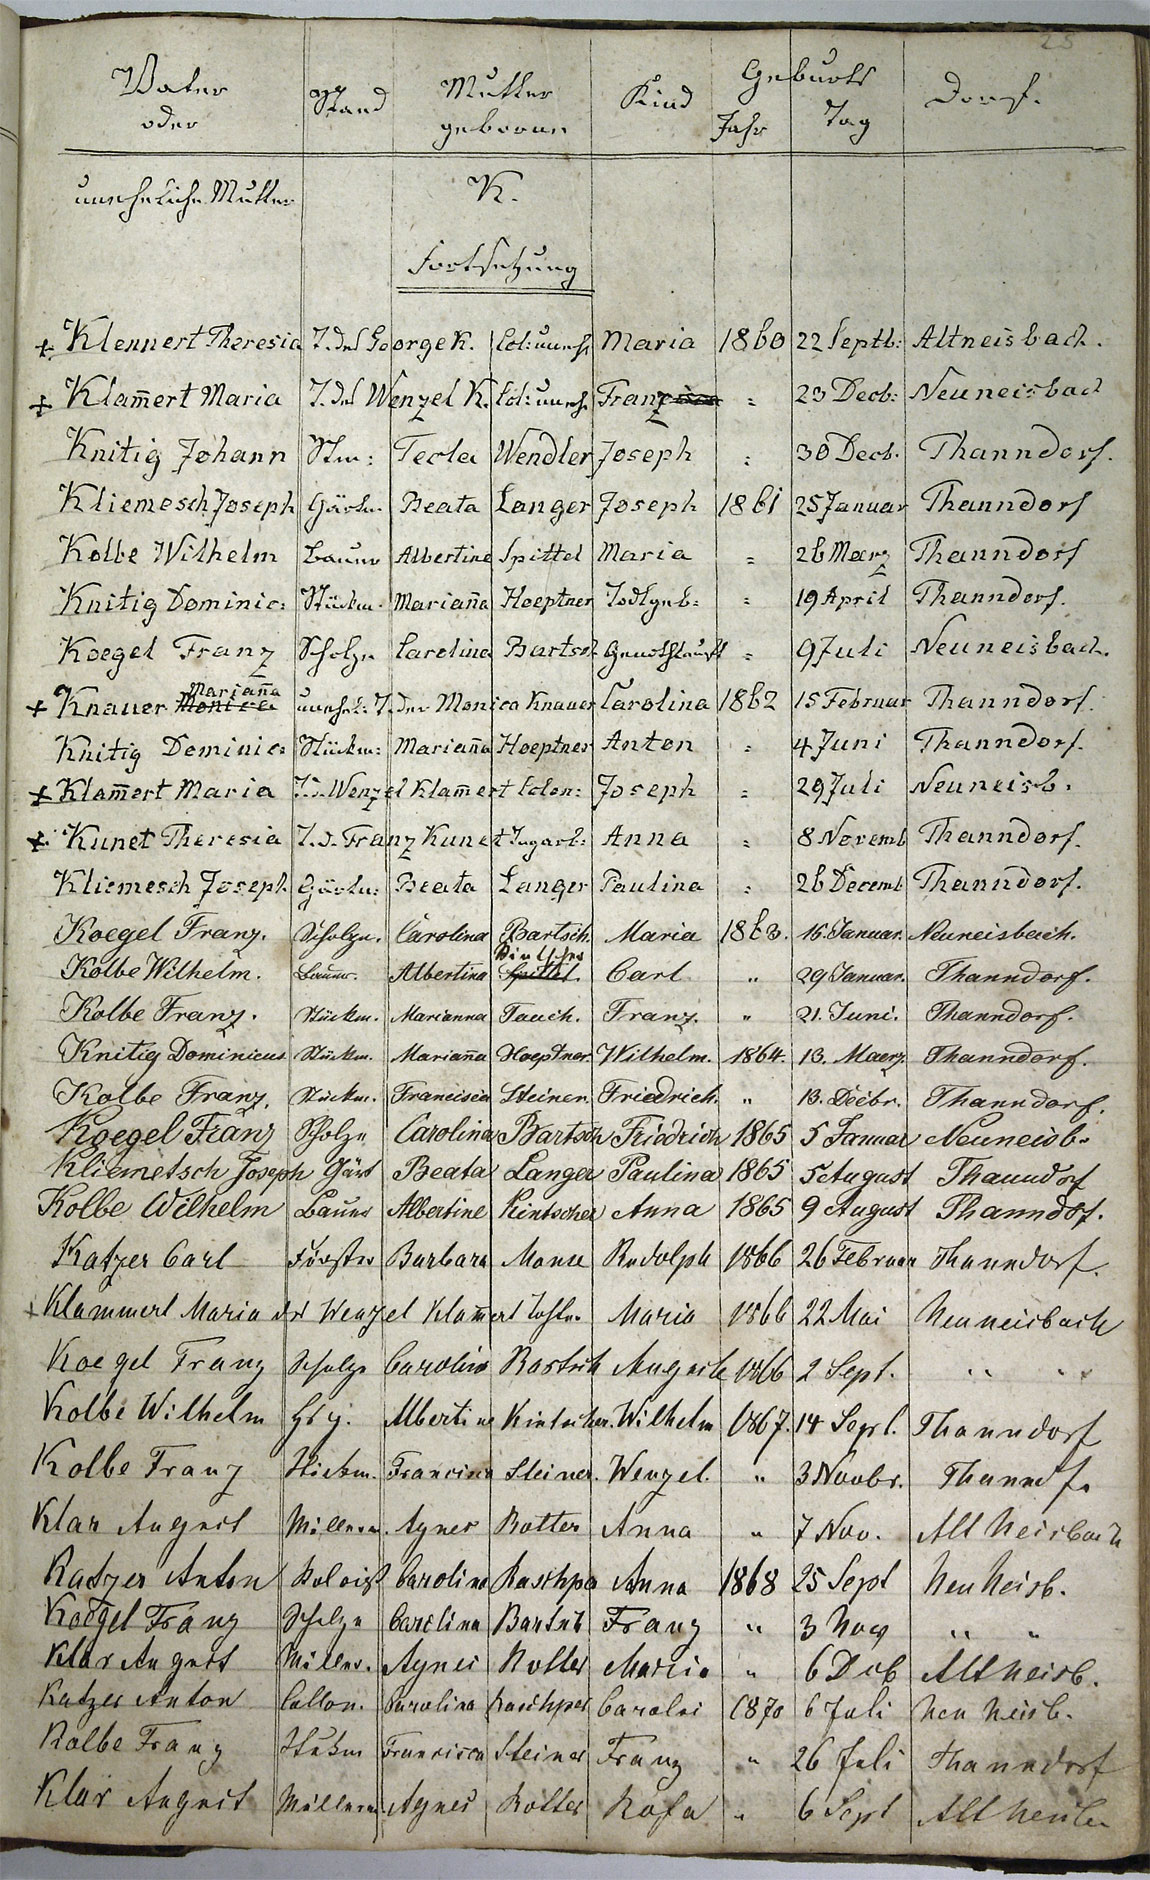 25
Vater Stand Mutter Kind Geburts Dorf.
oder geborne Jahr Tag
uneheliche Mutter K.
Fortsetzung
+ Klennert Theresia T. des George K. Col: uneh. Maria 1860 22 Septb: Altneisbach.
+ Klam̄ert Maria T. des Wenzel K. Col: uneh. Franz " 23 Decb: Neuneisbach
Knitig Johann Stm: Tecla Wendler Joseph " 30 Decb. Thanndorf.
Kliemesch Joseph Gärtn. Beata Langer Joseph 1861 25 Januar Thanndorf
Kolbe Wilhelm Bauer Albertine Spittel Maria " 26 Maerz Thanndorf
Knitig Dominic: Stückm. Marian̄a Hoeptner Todtgeb: " 19 April Thanndorf.
Koegel Franz Scholze Carolina Bartsch " 9 Juli Neuneisbach.
+ Knauer Monica Marian̄a unehel: T. der Monica Knauer Carolina 1862 15 Februar Thanndorf.
Knitig Dominic: Stückm: Marian̄a Hoeptner Anton " 4 Juni Thanndorf.
+ Klam̄ert Maria T. d. Wenzel Klam̄ert Colon: Joseph " 29 Juli Neuneisb.
+ Kunet Theresia T. d. Franz Kunet Tagarb: Anna " 8 Novemb Thanndorf.
Kliemesch Joseph Gärtn: Beata Langer Paulina " 26 Decemb Thanndorf.
Koegel Franz. Scholze. Carolina Bartsch. Maria 1863. 16. Januar. Neuneisbach.
Kolbe Wilhelm. Bauer. Albertina Spittel. Kintscher Carl " 29 Januar. Thanndorf.
Kolbe Franz. Stückm. Marianna Tauch. Franz. " 21. Juni. Thanndorf.
Knitig Dominicus Stückm. Marian̄a Hoeptner Wilhelm. 1864. 13. Maerz. Thanndorf.
Kolbe Franz. Stückm. Francisca Steiner. Friedrich. " 13. Decbr. Thanndorf.
Koegel Franz Scholze Carolina Bartsch Friedrich 1865 5 Januar Neuneisb.
Kliemetsch Joseph Gärt Beata Langer Paulina 1865 5 August Thanndorf
Kolbe Wilhelm Bauer Albertine Kintscher Anna 1865 9 August Thanndof.
Katzer Carl Förster Barbara Rudolph 1866 26 Februar Thanndorf.
+ Klammert Maria des Wenzel Klam̄ert Tochter Maria 1866 22 Mai Neuneisbach
Koegel Franz Scholze Carolina Bartsch August 1866 2 Sept. " "
Kolbe Wilhelm Albertine Kintscher. Wilhelm 1867. 14 Sept. Thanndorf
Kolbe Franz Stückm. Francisca Steiner. Wenzel. " 3 Novbr. Thanndf.
Klar August Müllerm. Agnes Rotter Anna " 7 Nov. Alt Neisbach
Katzer Anton Kolonist Carolina Raschper Anna 1868 25 Sept Neu Neisb.
Koegel Franz Scholze Carolina Bartsch Franz " 3 Nov " "
Klar August Müller. Agnes Rotter Maria " 6 Decb Alt Neisb.
Katzer Anton Collon. Carolina Raschper 1870 6 Juli Neu Neisb.
Kolbe Franz Stückm Francisca Steiner Franz " 26 Juli Thanndorf
Klar August Müllerm. Agnes Rotter Rosa " 6 Sept